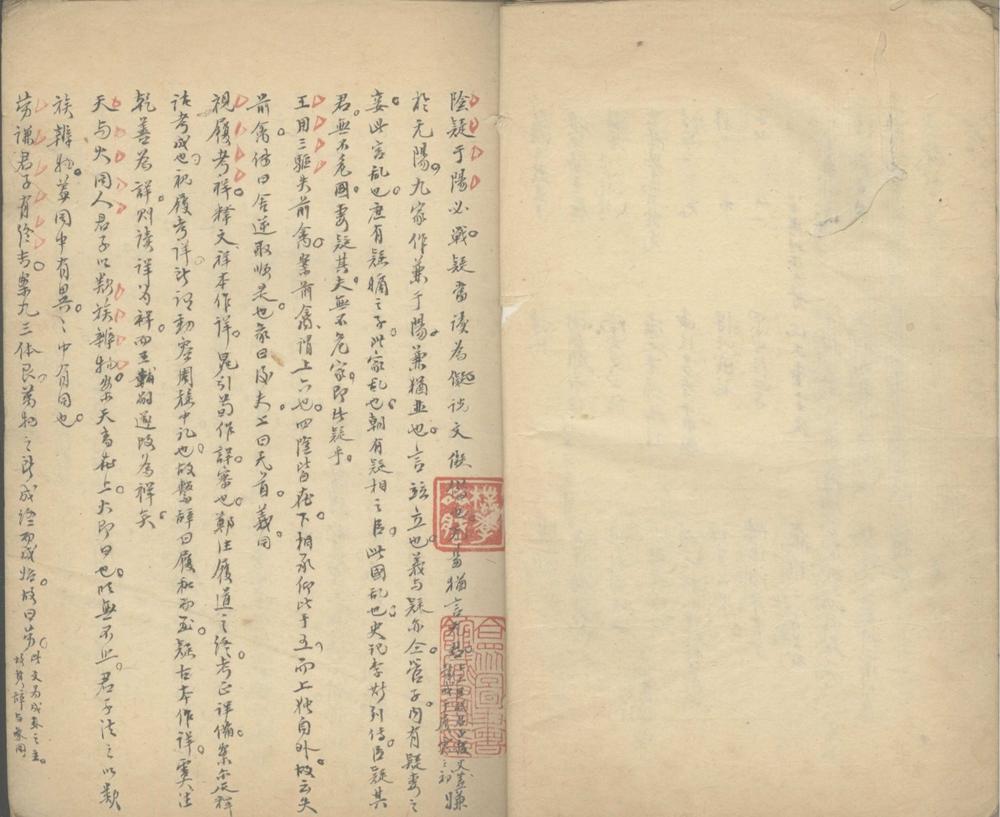 陰疑于陽必戰疑當讀為儗說文儗
於无陽九家作兼于陽兼猶並也言竝立也義与疑亦仝管子內有疑妻之
妾此宮亂也庶有疑嫡之子此家乱也朝有疑相之臣此國乱也史記李斯列傳臣疑其
君無不危國妻疑其夫無不危家即此疑乎
王用三驅失前禽案前禽謂上六也四陰皆在下相承仰比于五而上独自外故云失
前禽傳曰舍逆取順是也彖曰後夫上曰无首義同
視履考祥釋文祥本作詳晁引荀作詳審也鄭注履道之終考正詳備案尔疋釋
詁考成也視履考詳此謂動容周旋中礼也故繫辭曰履和而至疑古本作詳虞注
乾善為詳則读詳为祥而王輔嗣遂改為祥矣
天与火同人君子以類族辨物案天高在上火即日也照無不止君子法之以類
族辨物蓋同中有異異中有同也
劳謙君子有終吉案九三体艮萬物之所成終而成始故曰劳此文为成卦之主